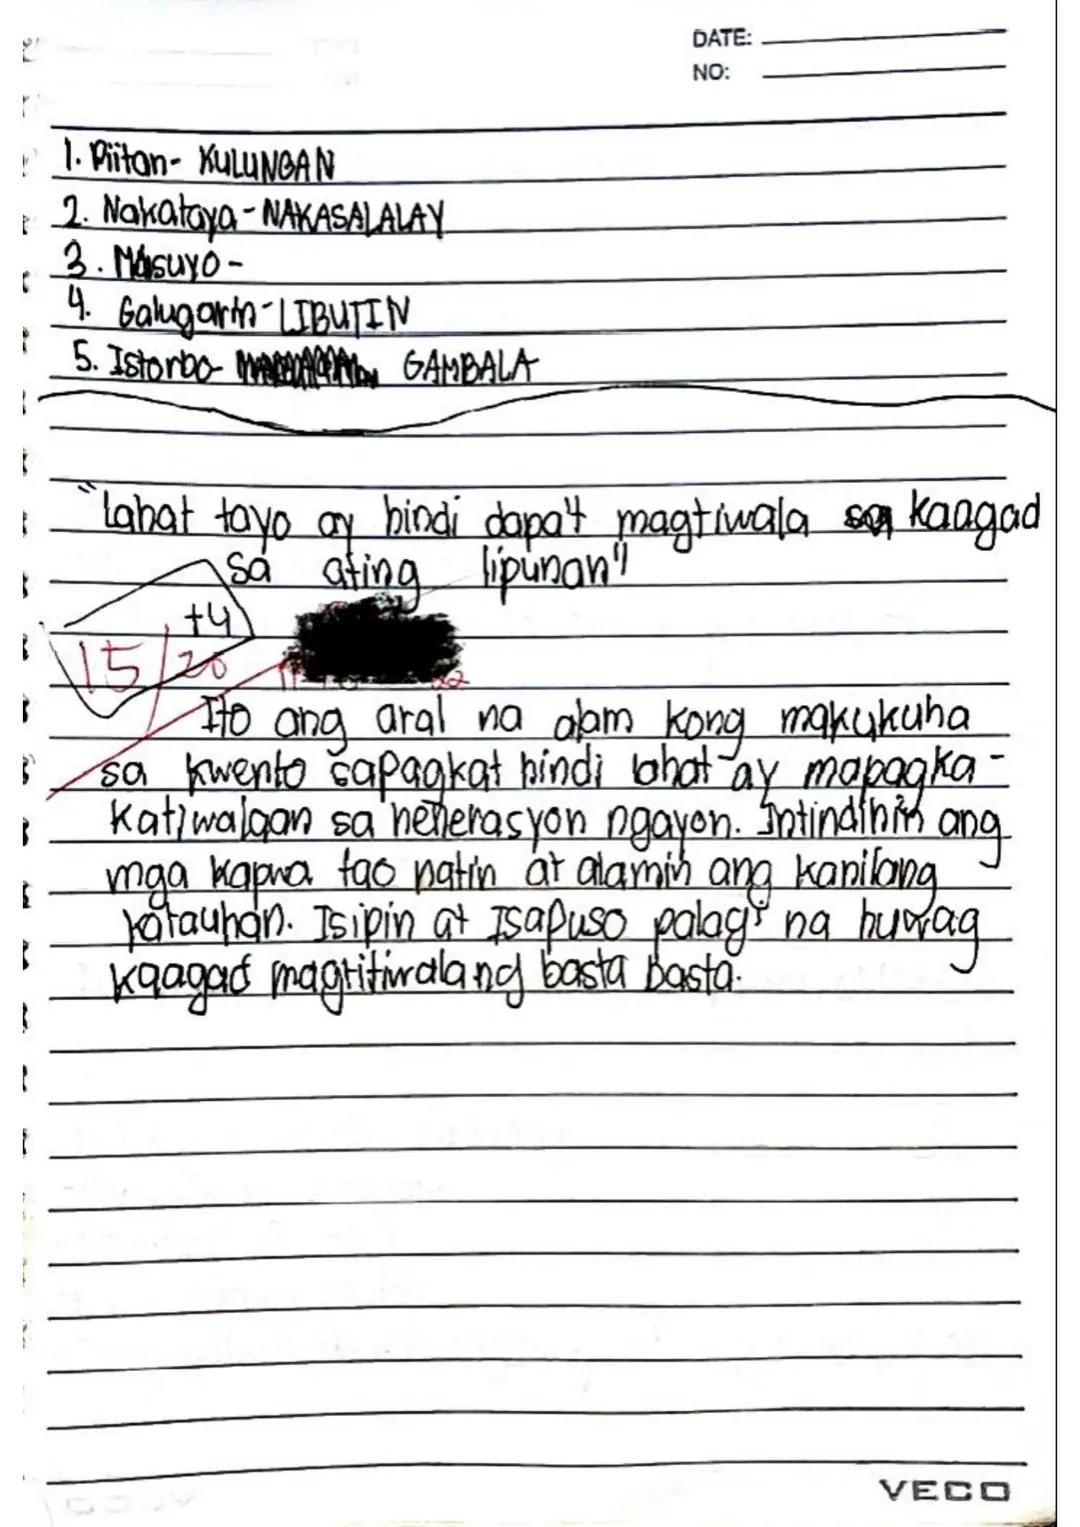 DATE:
NO:
1. Piitan- KULUNGAN
2. Nakataya - NAKASALALAY
3. Masuyo -
4. Galugarin - LIBUTIN
5. Istorbo- GAMBALA
"Lahat tayo ay hindi dapat magtiwala kaagad
sa ating lipunan"
+4
15/20
Ito ang aral na alam kong makukuha
sa kwento sapagkat hindi lahat ay mapagka-
katiwalaan sa henerasyon ngayon. Intindihin ang
mga kapwa tao natin at alamin ang kanilang
katauhan. Isipin at Isapuso palagi na huwag
kaagad magtitiwalang basta basta.
VECO